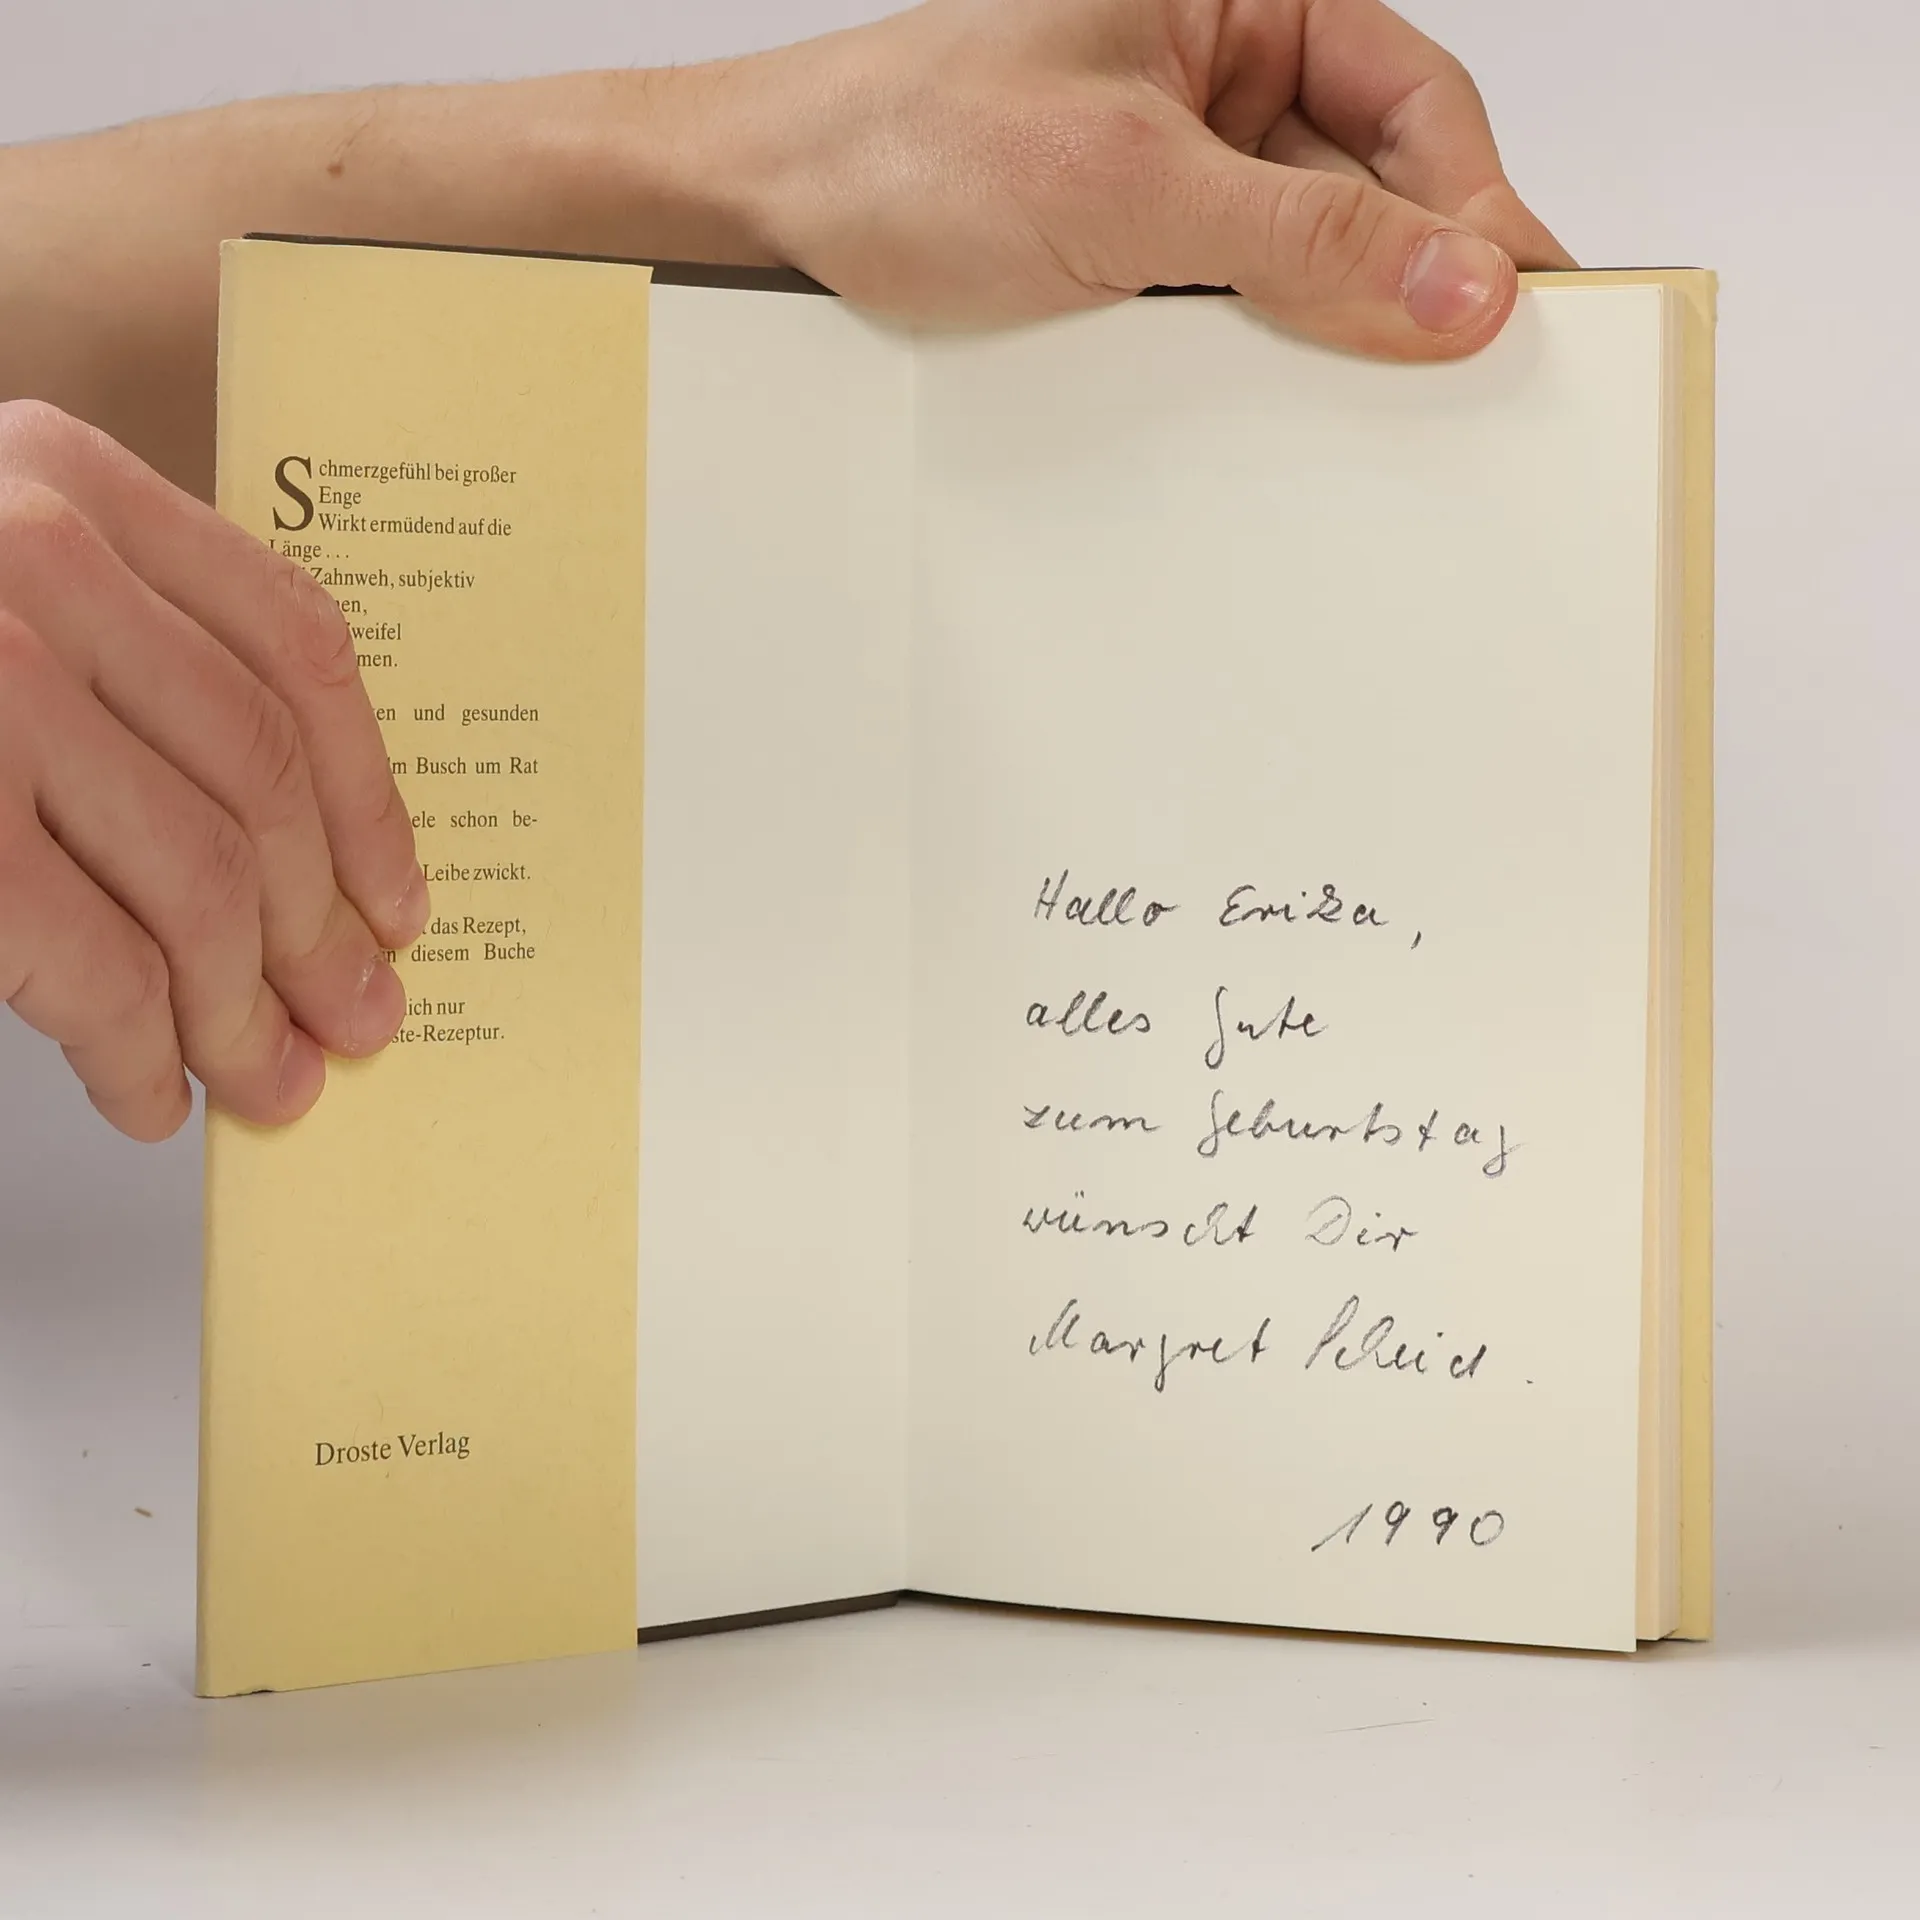 Schmerzgefühl bei großer
Enge
Wirkt ermüdend auf die
Länge...
Zahnweh, subjektiv
und gesunden
Busch um Rat
schon be-
Leibe zwickt.
das Rezept,
diesem Buche
nur
Droste Verlag
Hallo Erika,
alles Gute
zum Geburtstag
wünscht Dir
Margret Scheid.
1990